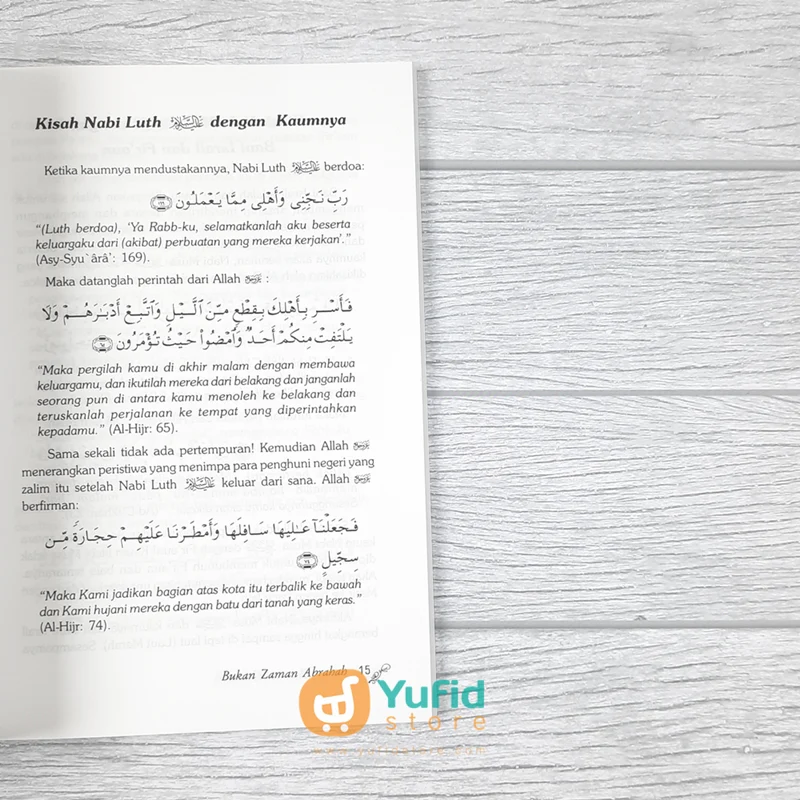 Kisah Nabi Luth عليه السلام dengan Kaumnya
Ketika kaumnya mendustakannya, Nabi Luth عليه السلام berdoa:
رَبِّ نَجِّنِى وَأَهْلِى مِمَّا يَعْمَلُونَ ١٦٩
“(Luth berdoa), ‘Ya Rabb-ku, selamatkanlah aku beserta
keluargaku dari (akibat) perbuatan yang mereka kerjakan’.”
(Asy-Syu`ârâ’: 169).
Maka datanglah perintah dari Allah :
فَأَسْرِ بِأَهْلِكَ بِقِطْعٍ مِّنَ ٱلَّيْلِ وَٱتَّبِعْ أَدْبَـٰرَهُمْ وَلَا
يَلْتَفِتْ مِنكُمْ أَحَدٌ وَٱمْضُوا۟ حَيْثُ تُؤْمَرُونَ ٦٥
“Maka pergilah kamu di akhir malam dengan membawa
keluargamu, dan ikutilah mereka dari belakang dan janganlah
seorang pun di antara kamu menoleh ke belakang dan
teruskanlah perjalanan ke tempat yang diperintahkan
kepadamu.” (Al-Hijr: 65).
Sama sekali tidak ada pertempuran! Kemudian Allah
menerangkan peristiwa yang menimpa para penghuni negeri yang
zalim itu setelah Nabi Luth عليه السلام keluar dari sana. Allah
berfirman:
فَجَعَلْنَا عَـٰلِيَهَا سَافِلَهَا وَأَمْطَرْنَا عَلَيْهِمْ حِجَارَةً مِّن
سِجِّيلٍ ٧٤
“Maka Kami jadikan bagian atas kota itu terbalik ke bawah
dan Kami hujani mereka dengan batu dari tanah yang keras.”
(Al-Hijr: 74).
Bukan Zaman Abrahah 15
Yufid
store
www.yufidstore.com